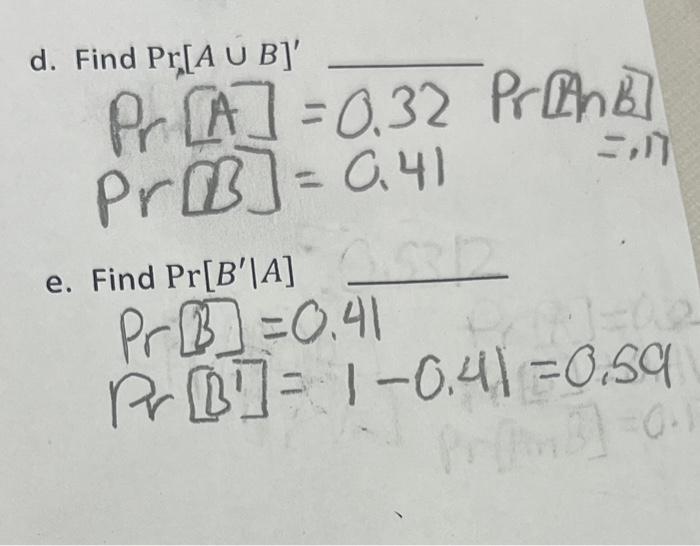 d. Find Pr[A ∪ B]′
Pr[A] = 0.32 Pr[A∩B]
Pr[B] = 0.41 =.17
e. Find Pr[B′|A]
Pr[B] = 0.41
Pr[B'] = 1 - 0.41 = 0.59